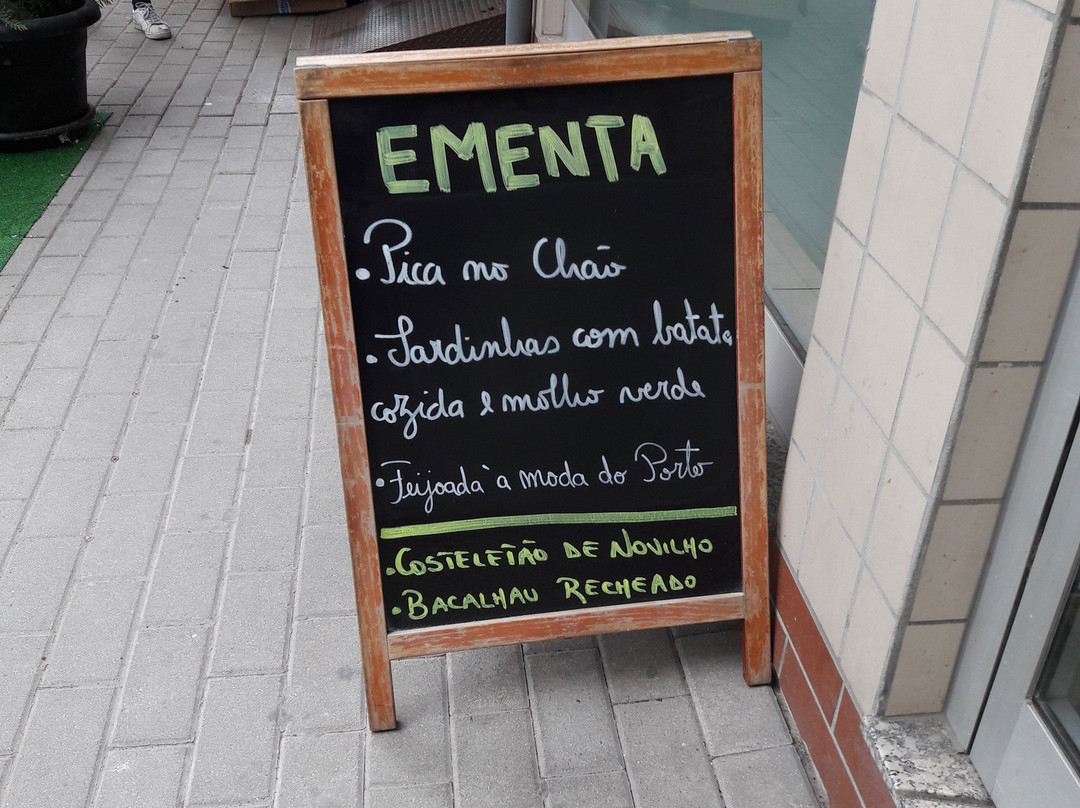 EMENTA
• Pica no Chão
• Sardinhas com batata
cozida e molho verde
• Feijoada à moda do Porto
• COSTELETÃO DE NOVILHO
• BACALHAU RECHEADO